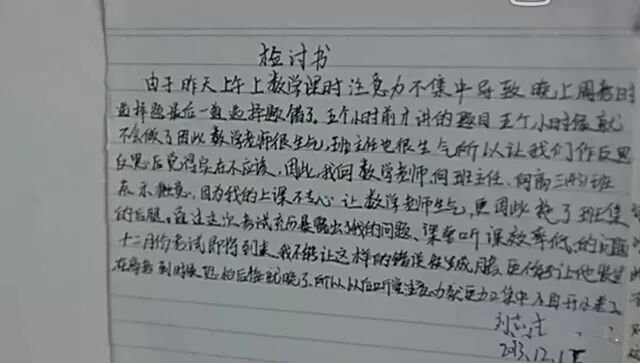 检讨书
由于昨天上午上数学课时注意力不集中导致晚上周考时
选择题最后一题选择题错了。五个小时前才讲的题目五个小时后就
不会做了因此数学老师很生气,班主任也很生气所以让我们作反思
反思后觉得实在不应该,因此,我向数学老师,向班主任,向高三(43)班
表示歉意,因为我的上课不专心 让数学老师生气,更因此拖了班集
的后腿。通过这次考试充分暴露出了我的问题、课堂听课效率低的问题
十二月份考试即将到来,我不能让这样的错误
在高考到时候恐怕后悔就晚了.所以以后听课注意力就更加集中不再开小差了
2013.12.15